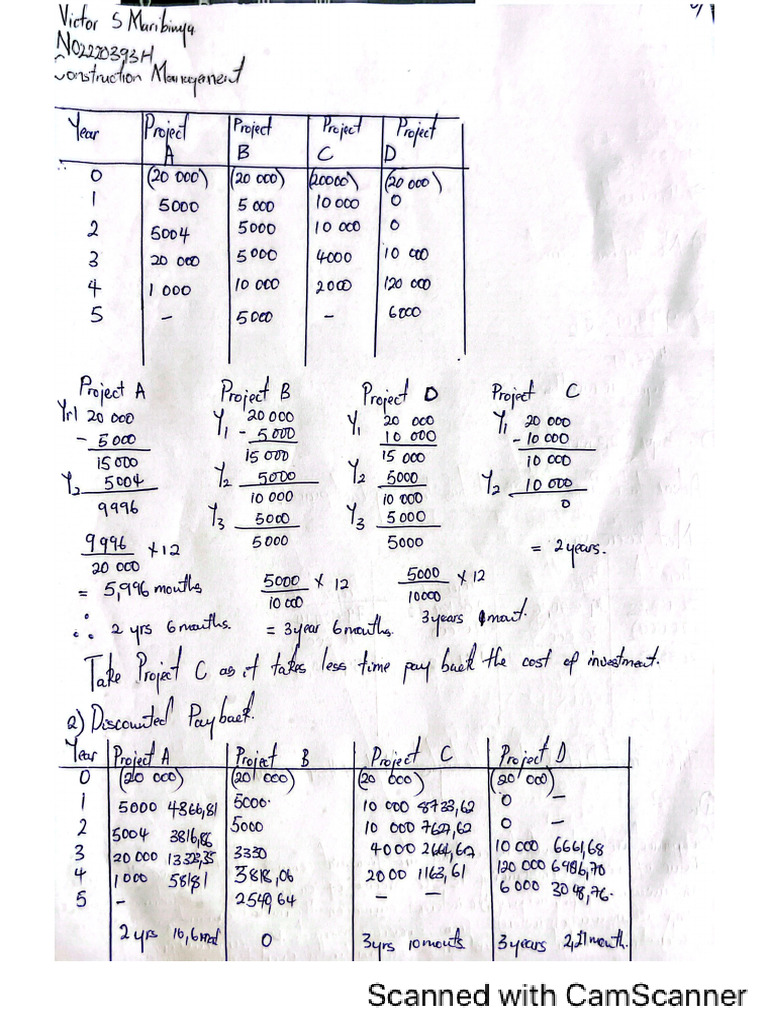 Victor S Maribinya
N02220393H
Construction Management
Year Project A Project B Project C Project D
0 (20 000) (20 000) (20000) (20 000)
1 5000 5 000 10 000 0
2 5004 5000 10 000 0
3 20 000 5000 4000 10 000
4 1 000 10 000 2000 120 000
5 - 5000 - 6000
Project A Project B Project D Project C
Yr1 20 000 Y1 20 000 Y1 20 000 Y1 20 000
- 5 000 - 5 000 10 000 - 10 000
15 000 15 000 15 000 10 000
Y2 5004 Y2 5000 Y2 5000 Y2 10 000
9996 10 000 10 000 0
Y3 5000 Y3 5 000
5000 5000
= 2 years.
9996 / 20 000 × 12
= 5,996 months 5000 / 10 000 × 12 5000 / 10000 × 12
∴ 2 yrs 6 months. = 3 year 6 months. 3 years 1 mont.
Take Project C as it takes less time pay back the cost of investment.
2) Discounted Payback.
Year Project A Project B Project C Project D
0 (20 000) (20 000) (20 000) (20 000)
1 5000 4866,81 5000. 10 000 8733,62 0 -
2 5004 3816,86 5000 10 000 7627,62 0 -
3 20 000 1332,35 3330 4000 2664,67 10 000 6661,68
4 1 000 581,81 3818,06 2000 1163,61 120 000 6986,70
5 - 2540,64 - - 6 000 3048,76.
2 yrs 10,6 0 3yrs 10 months 3 years 2,21 month.
Scanned with CamScanner